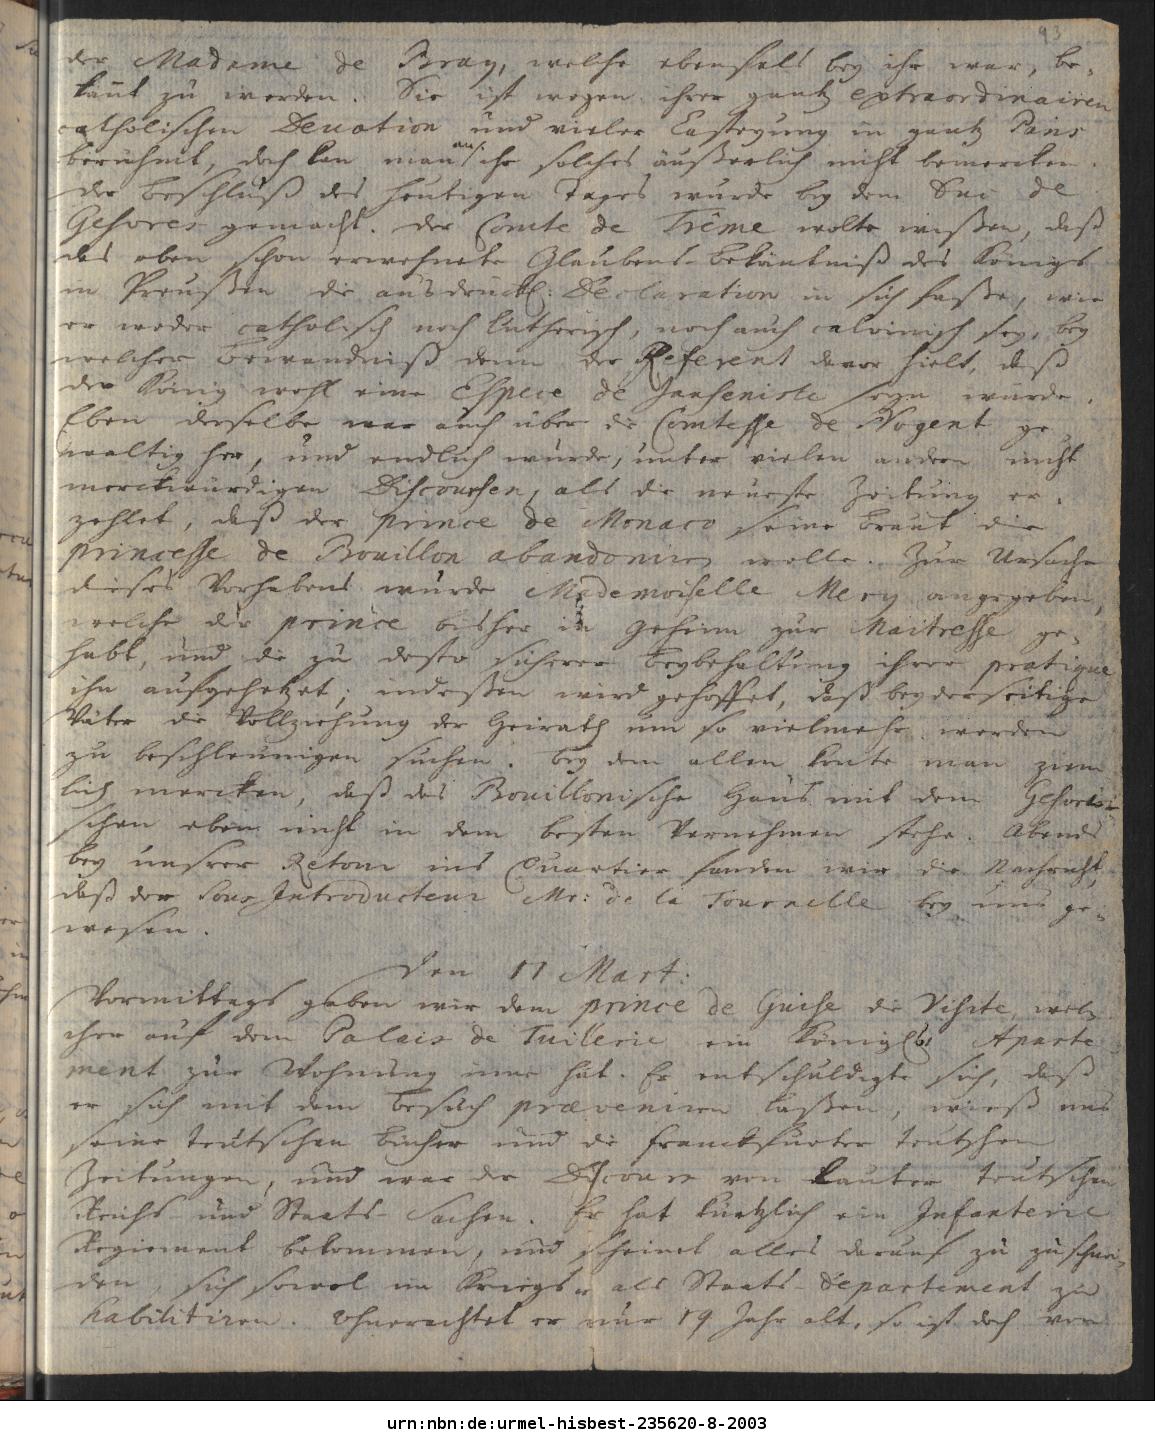 93
der Madame de Bray, welche ebenfals bey ihr war, be-
kañt zu werden. Sie ist wegen ihrer gantz extraordinairen
catholischen Devotion und vieler Casteyung in gantz Paris
berühmt, doch kan man aus ihr solches äußerlich nicht bemercken.
Der Beschluß des heutigen Tages wurde bey dem Duc de
Gesvres gemacht. Der Comte de Trême wolte wißen, daß
das oben schon erwehnte Glaubens-Bekäntniß des Königs
in Preußen die ausdrückl: Declaration in sich faße, wie
er weder catholisch noch lutherisch, noch auch calvinisch sey, bey
welcher Bewandniß denn der Referent davor hielt, daß
der König wohl eine Espece de Janseniste seyn würde.
Eben derselbe war auch über die Comtesse de Nogent ge-
waltig her, und endlich wurde, unter vielen andern nicht
merckwürdigen Discoursen, als die neueste Zeitung er-
zehlet, daß der prince de Monaco seine Braut die
princesse de Bouillon abandoniren wolle. Zur Ursache
dieses Vorhabens wurde Mademoiselle Mery angegeben,
welche der prince bisher in geheim zur Maitresse ge-
habt, und die zu desto sicherer Beybehaltung ihrer pratique
ihn aufgehetzet; indeßen wird gehoffet, daß beyderseitige
Väter die Vollziehung der Heirath um so vielmehr werden
zu beschleunigen suchen. Bey dem allen konte man ziem
lich mercken, daß das Bouillonische Haus mit dem Gesvri-
schen eben nicht in dem besten Vernehmen stehe. Abends
bey unsrer Retour ins Quartier fanden wir die Nachricht,
daß der Sous Introducteur Mr: de la Tournelle bey uns ge-
wesen.
Den 11 Mart:
Vormittags gaben wir dem prince de Guise die Visite, wel-
cher auf dem Palais de Tuillerie ein Königl: Aparte
ment zur Wohnung inne hat. Er entschuldigte sich, daß
er sich mit dem Besuch præveniren laßen, wieß uns
seine teutschen Bücher und die franckfurter teutschen
Zeitungen, und war der Discours von lauter teutschen
Reichs- und Staats-Sachen. Er hat kürtzlich ein Infanterie
Regiment bekommen, und scheinet alles darauf zu zu schnei-
den, sich sowol im Kriegs- als Staats-Departement zu
habilitiren. Ohnerachtet er nur 19 Jahr alt, so ist doch von
urn:nbn:de:urmel-hisbest-235620-8-2003